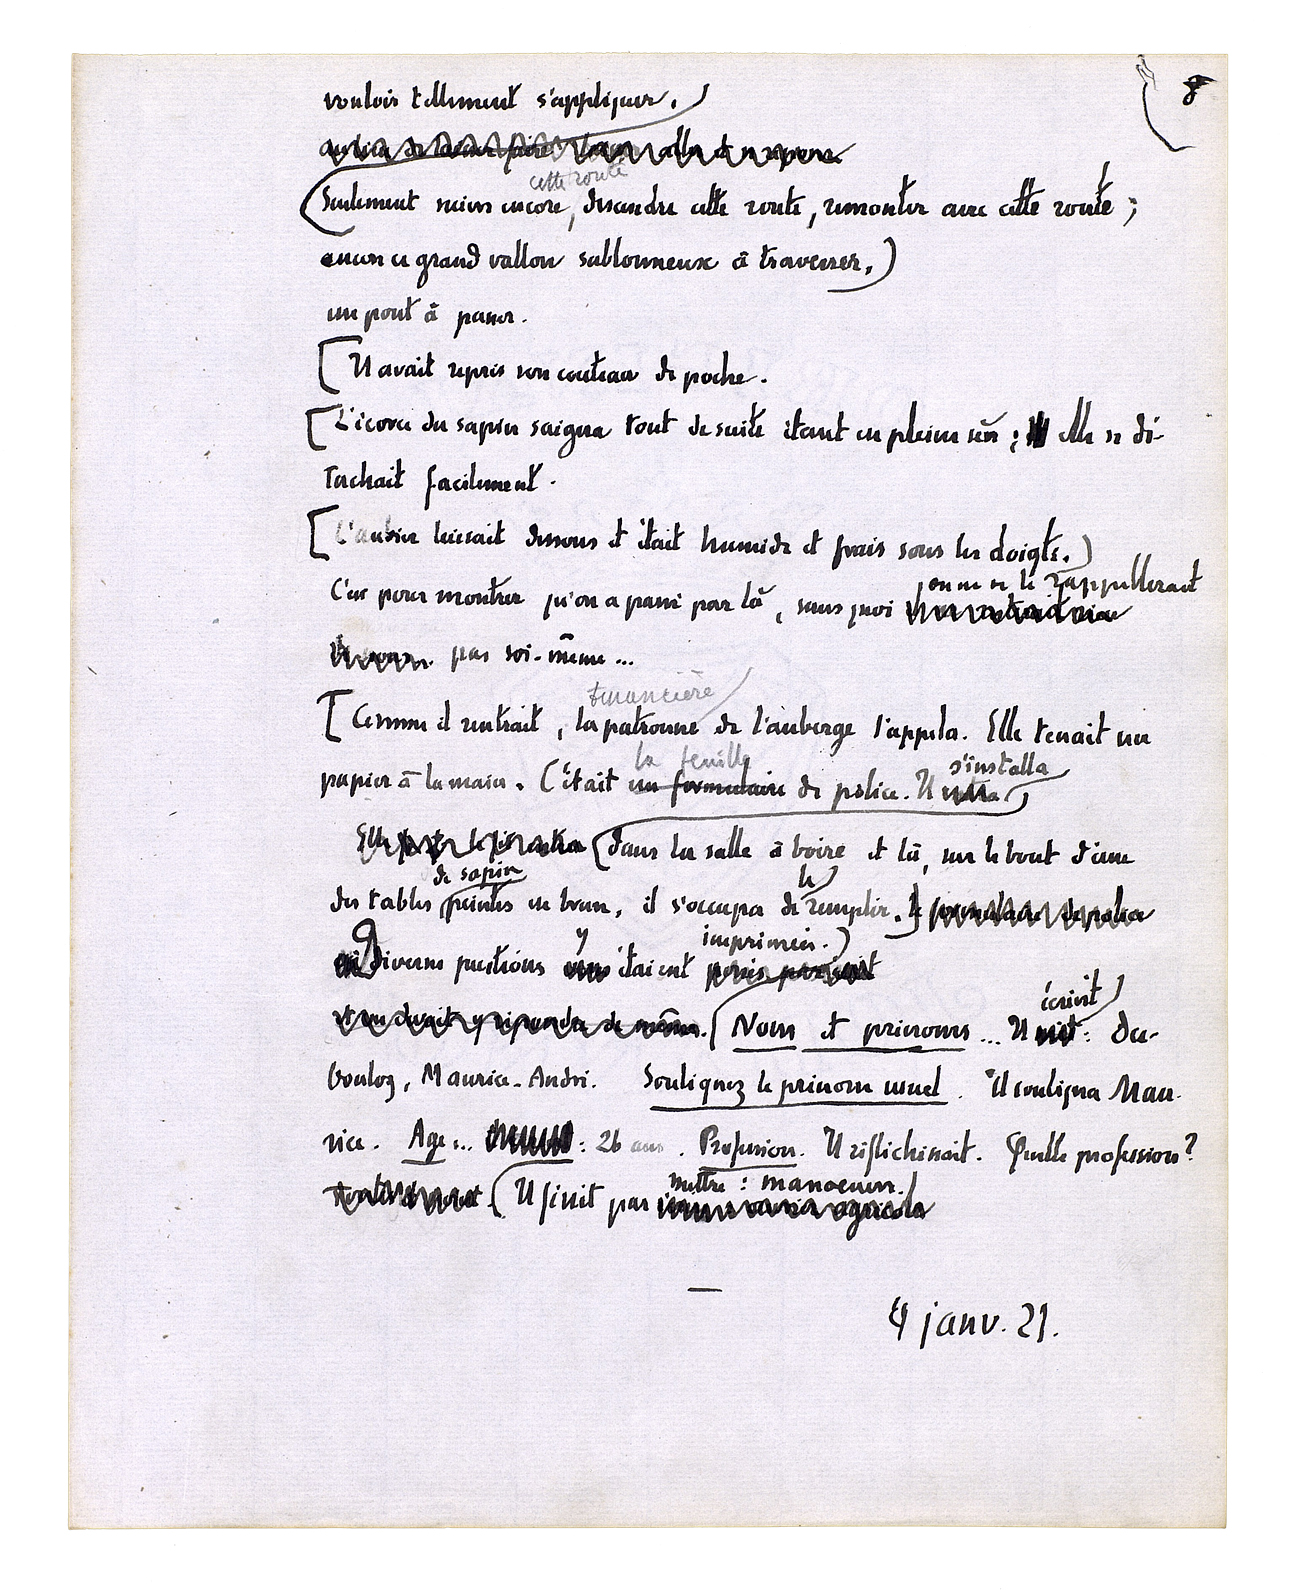 8
vouloir tellement s'appliquer.
au lieu de laisser faire
cette route
Seulement suivre encore, descendre cette route, remonter avec cette route ;
encore ce grand vallon sablonneux à traverser,)
un pont à passer.
[Il avait repris son couteau de poche.
[L'écorce du sapin saigna tout de suite étant en pleine sève ; elle se dé-
tachait facilement.
[L'aubier luisait dessous et était humide et frais sous les doigts.)
on ne se le rappellerait
C'est pour montrer qu'on a passé par là, sans quoi
pas soi-même...
[Comme il rentrait, la patronne de l'auberge l'appela. Elle tenait un
la feuille s'installa
papier à la main. C'était un formulaire de police. Il
(dans la salle à boire et là, sur le bout d'une
de sapin le
des tables peintes en brun, il s'occupa de remplir. formulaire de police
y imprimées.)
Diverses questions étaient
et on devait y répondre de même. écrivit
(Noms et prénoms... Il : Du-
bouloz, Maurice-André. Soulignez le prénom usuel. Il souligna Mau-
rice. Age... : 26 ans. Profession. Il réfléchissait. Quelle profession?
mettre : manoeuvre.
(Il finit par
4 janv. 21.